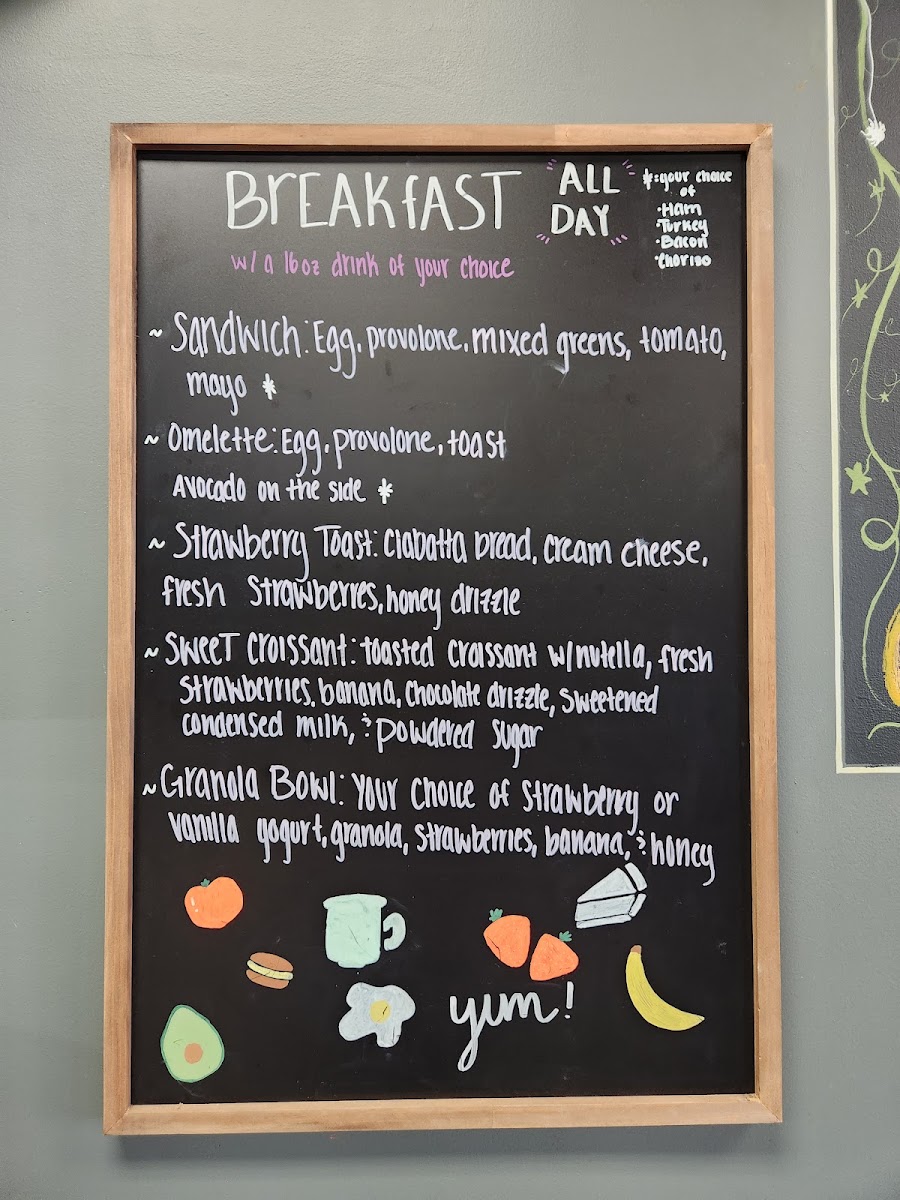 BREAKFAST
ALL
DAY
*=your choice
of
·Ham
·Turkey
·Bacon
·Chorizo
w/ a 16oz drink of your choice
~ Sandwich: Egg, provolone, mixed greens, tomato,
mayo *
~ Omelette: Egg, provolone, toast
Avocado on the side *
~ Strawberry Toast: Ciabatta bread, cream cheese,
fresh strawberries, honey drizzle
~ Sweet Croissant: toasted croissant w/nutella, fresh
strawberries, banana, chocolate drizzle, sweetened
condensed milk, & powdered sugar
~ Granola Bowl: Your choice of strawberry or
vanilla yogurt, granola, strawberries, banana, & honey
yum!